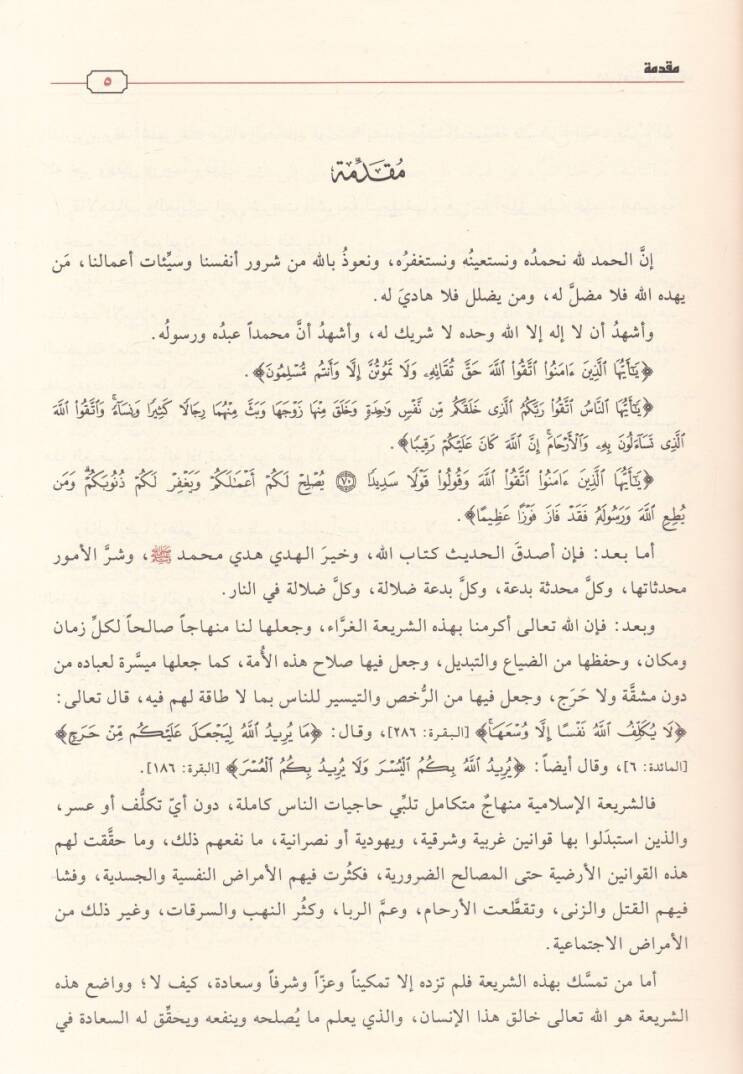 مقدمة
٥
مُقَدِّمَة
إنَّ الحمد لله نحمدُه ونستعينُه ونستغفرُه، ونعوذُ بالله من شرور أنفسنا وسيِّئات أعمالنا، مَن
يهده الله فلا مضلَّ له، ومن يضلل فلا هاديَ له.
وأشهدُ أن لا إله إلا الله وحده لا شريك له، وأشهدُ أنَّ محمداً عبدُه ورسولُه.
﴿يَٰٓأَيُّهَا الَّذِينَ ءَامَنُوا اتَّقُوا اللَّهَ حَقَّ تُقَاتِهِۦ وَلَا تَمُوتُنَّ إِلَّا وَأَنتُم مُّسْلِمُونَ﴾.
﴿يَٰٓأَيُّهَا النَّاسُ اتَّقُوا رَبَّكُمُ الَّذِى خَلَقَكُم مِّن نَّفْسٍ وَٰحِدَةٍ وَخَلَقَ مِنْهَا زَوْجَهَا وَبَثَّ مِنْهُمَا رِجَالًا كَثِيرًا وَنِسَآءً ۚ وَاتَّقُوا اللَّهَ
الَّذِى تَسَآءَلُونَ بِهِۦ وَالْأَرْحَامَ ۚ إِنَّ اللَّهَ كَانَ عَلَيْكُمْ رَقِيبًا﴾.
﴿يَٰٓأَيُّهَا الَّذِينَ ءَامَنُوا اتَّقُوا اللَّهَ وَقُولُوا قَوْلًا سَدِيدًا ٧٠ يُصْلِحْ لَكُمْ أَعْمَٰلَكُمْ وَيَغْفِرْ لَكُمْ ذُنُوبَكُمْ ۗ وَمَن
يُطِعِ اللَّهَ وَرَسُولَهُۥ فَقَدْ فَازَ فَوْزًا عَظِيمًا﴾.
أما بعد: فإن أصدقَ الحديث كتاب الله، وخيرَ الهدي هدي محمد ﷺ، وشرَّ الأمور
محدثاتها، وكلَّ محدثة بدعة، وكلَّ بدعة ضلالة، وكلَّ ضلالة في النار.
وبعد: فإن الله تعالى أكرمنا بهذه الشريعة الغرَّاء، وجعلها لنا منهاجاً صالحاً لكلِّ زمان
ومكان، وحفظها من الضياع والتبديل، وجعل فيها صلاح هذه الأُمة، كما جعلها ميسَّرة لعباده من
دون مشقَّة ولا حَرَج، وجعل فيها من الرُّخص والتيسير للناس بما لا طاقة لهم فيه، قال تعالى:
﴿لَا يُكَلِّفُ اللَّهُ نَفْسًا إِلَّا وُسْعَهَا ۚ﴾ [البقرة: ٢٨٦]، وقال: ﴿مَا يُرِيدُ اللَّهُ لِيَجْعَلَ عَلَيْكُم مِّنْ حَرَجٍ﴾
[المائدة: ٦]، وقال أيضاً: ﴿يُرِيدُ اللَّهُ بِكُمُ الْيُسْرَ وَلَا يُرِيدُ بِكُمُ الْعُسْرَ﴾ [البقرة: ١٨٦].
فالشريعة الإسلامية منهاجٌ متكامل تلبِّي حاجيات الناس كاملة، دون أيّ تكلُّف أو عسر،
والذين استبدَلوا بها قوانين غربية وشرقية، ويهودية أو نصرانية، ما نفعهم ذلك، وما حقَّقت لهم
هذه القوانين الأرضية حتى المصالح الضرورية، فكثُرت فيهم الأمراض النفسية والجسدية، وفشا
فيهم القتل والزنى، وتقطَّعت الأرحام، وعمَّ الربا، وكثُر النهب والسرقات، وغير ذلك من
الأمراض الاجتماعية.
أما من تمسَّك بهذه الشريعة فلم تزده إلا تمكيناً وعزّاً وشرفاً وسعادة، كيف لا؛ وواضع هذه
الشريعة هو الله تعالى خالق هذا الإنسان، والذي يعلم ما يُصلحه وينفعه ويحقِّق له السعادة في